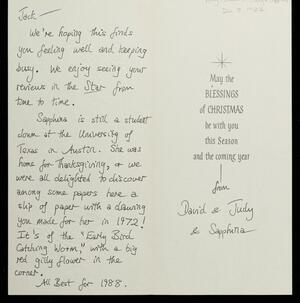 Jack —
We're hoping this finds
you feeling well and keeping
busy. We enjoy seeing your
reviews in the Star from
time to time.
Sapphira is still a student
down at the University of
Texas in Austin. She was
home for Thanksgiving, & we
were all delighted to discover
among some papers here a
slip of paper with a drawing
you made for her in 1972!
It's of the "Early Bird
Catching Worm," with a big
red gilly flower in the
corner.
All Best for 1988.
May the
BLESSINGS
of CHRISTMAS
be with you
this Season
and the coming year
from
David & Judy
& Sapphira